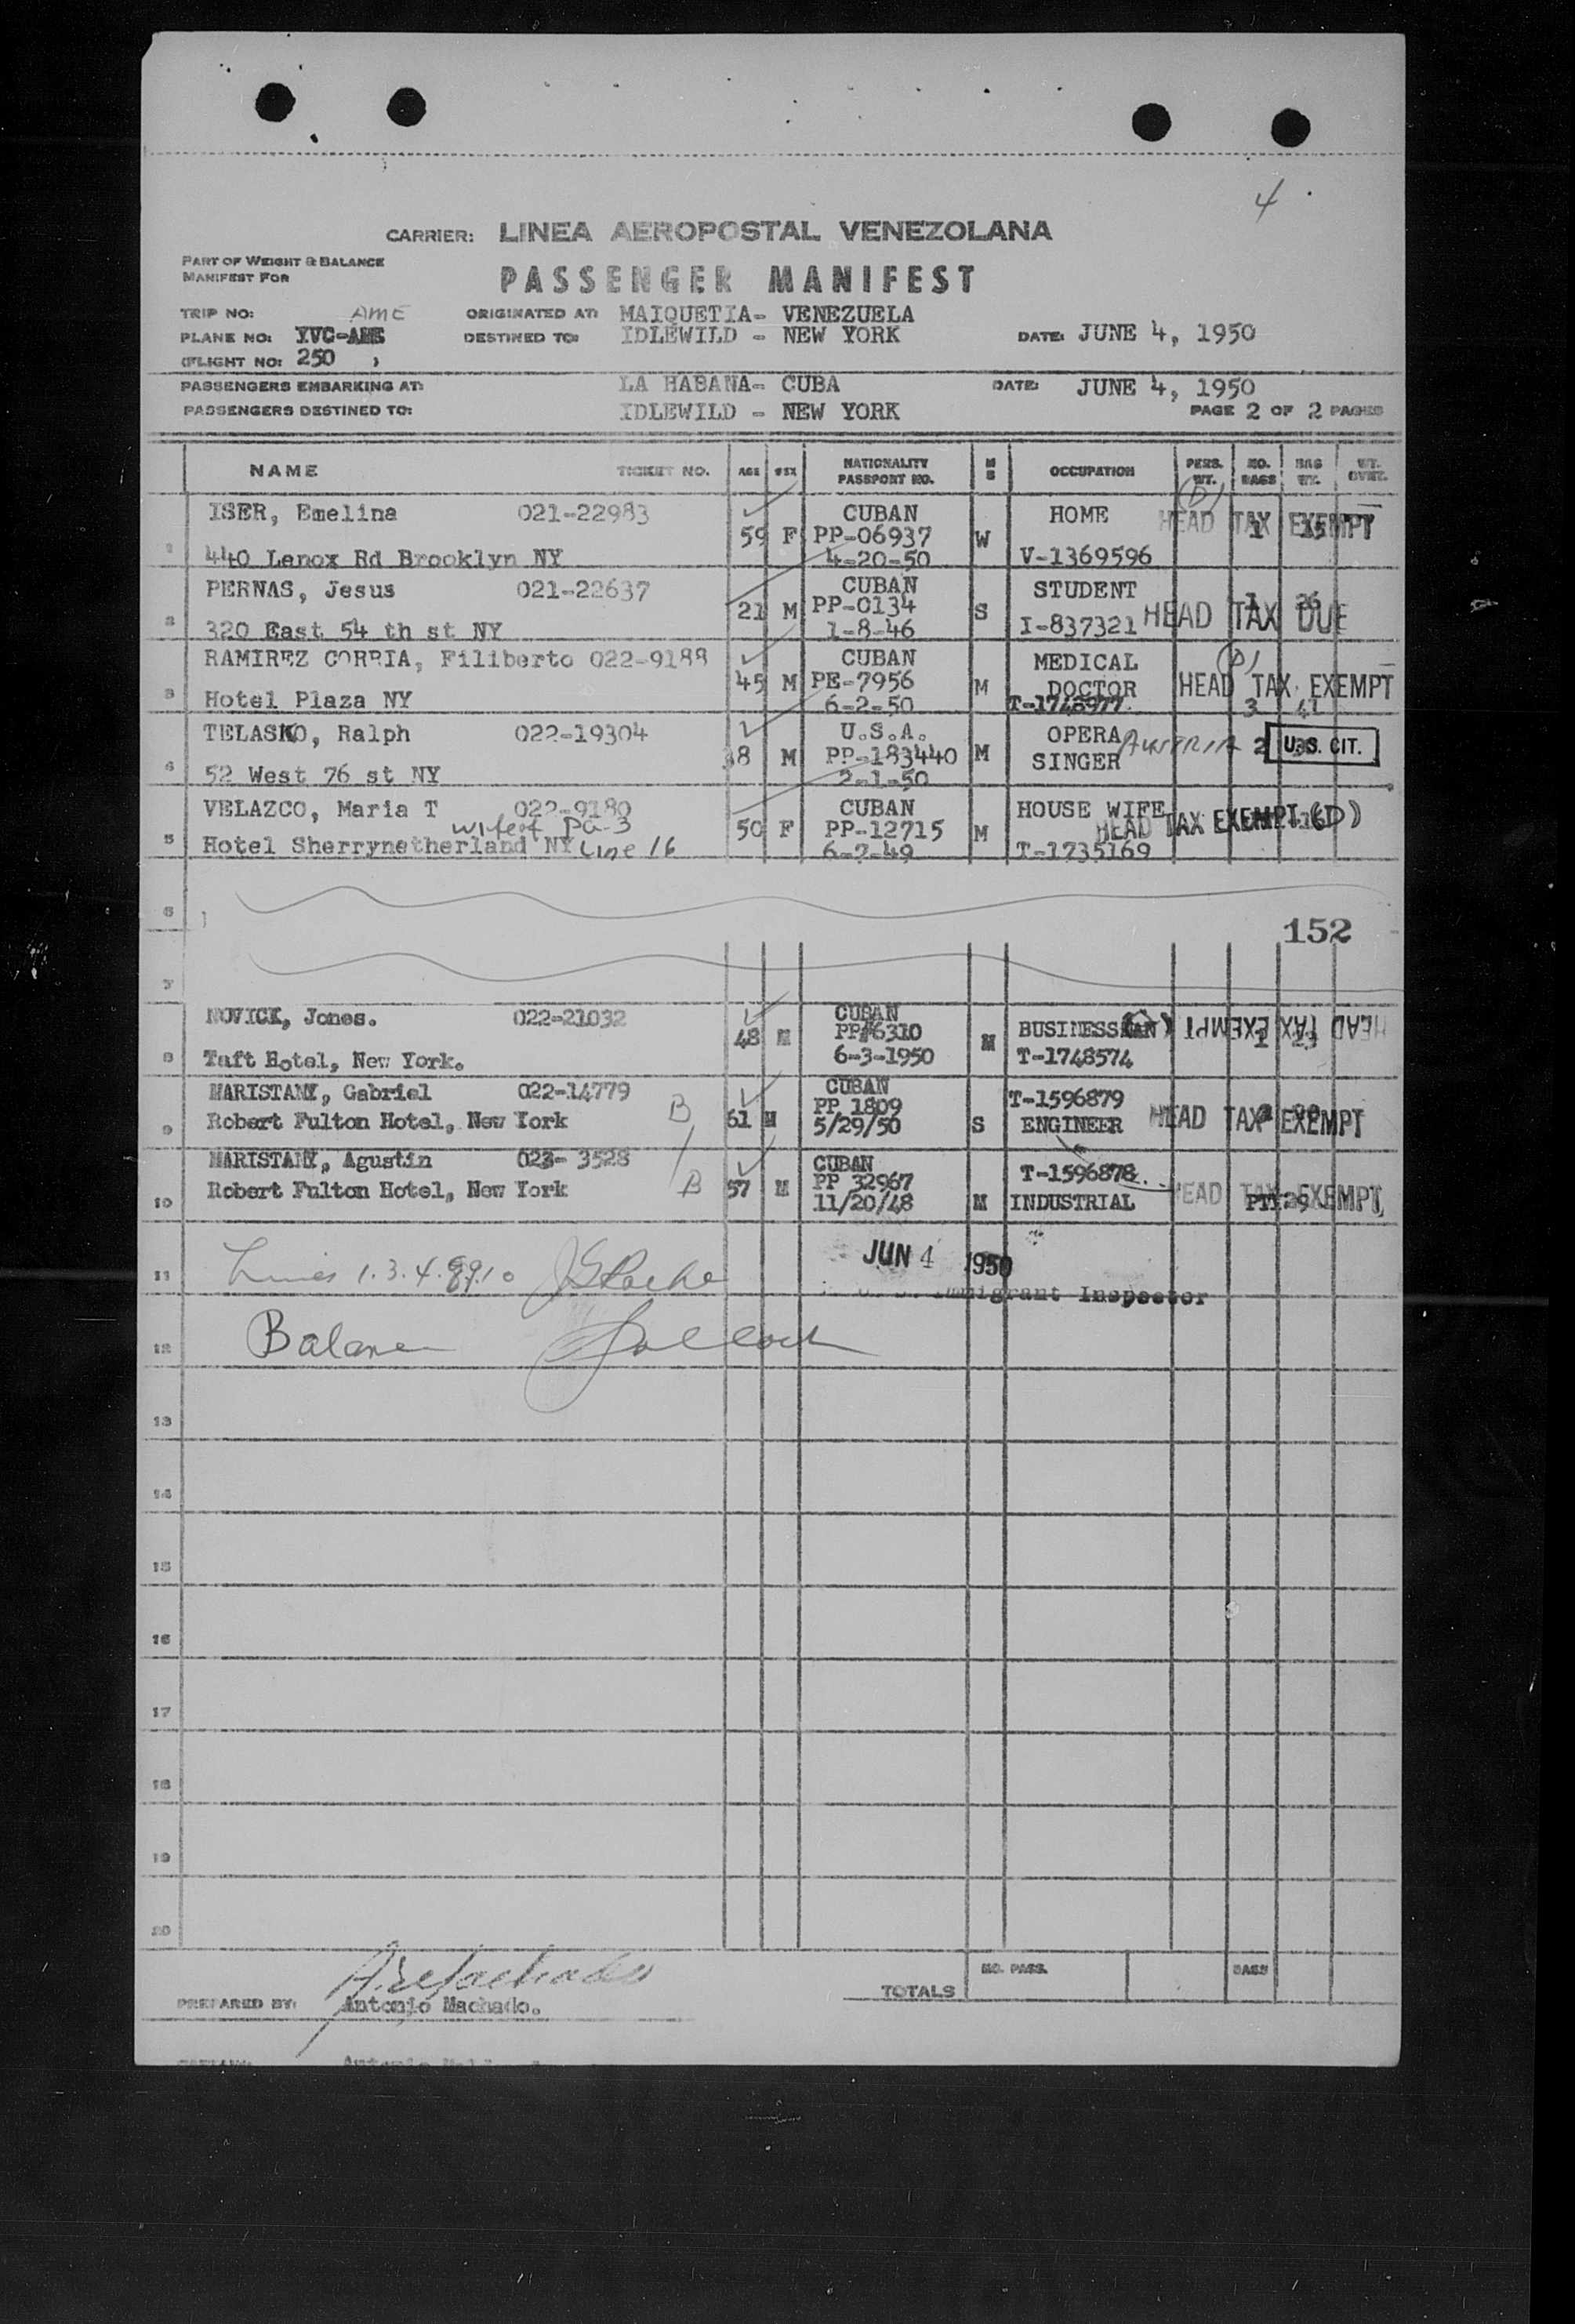 4
CARRIER: LINEA AEROPOSTAL VENEZOLANA
PART OF WEIGHT & BALANCE
MANIFEST FOR
PASSENGER MANIFEST
TRIP NO: AME ORIGINATED AT: MAIQUETIA- VENEZUELA
PLANE NO: YVC-AME DESTINED TO: IDLEWILD - NEW YORK DATE: JUNE 4, 1950
(FLIGHT NO: 250 )
PASSENGERS EMBARKING AT: LA HABANA- CUBA DATE: JUNE 4, 1950
PASSENGERS DESTINED TO: IDLEWILD - NEW YORK PAGE 2 OF 2 PAGES
NAME TICKET NO. AGE SEX NATIONALITY PASSPORT NO. M S OCCUPATION PERS. WT. NO. BAGS BAG WT. WT. OVWT.
ISER, Emelina 021-22983 CUBAN HOME (D) HEAD TAX EXEMPT
1 59 F PP-06937 W 1 15
440 Lenox Rd Brooklyn NY 4-20-50 V-1369596
PERNAS, Jesus 021-22637 CUBAN STUDENT
2 21 M PP-0134 S 1 26 HEAD TAX DUE
320 East 54 th st NY 1-8-46 I-837321
RAMIREZ CORRIA, Filiberto 022-9188 CUBAN MEDICAL (D)
3 45 M PE-7956 M DOCTOR HEAD TAX EXEMPT
Hotel Plaza NY 6-2-50 T-1748977 3 41
TELASKO, Ralph 022-19304 U.S.A. OPERA AUSTRIA
4 38 M PP-183440 M SINGER 2 U.S. CIT.
52 West 76 st NY 2-1-50
VELAZCO, Maria T 022-9180 CUBAN HOUSE WIFE
wife of PG-3 50 F PP-12715 M HEAD TAX EXEMPT (D)
5 Hotel Sherrynetherland NY Line 16 6-7-49 T-1735169
6
152
7
NOVICK, Jones. 022-21032 CUBAN
48 M PP#6310 M BUSINESSMAN HEAD TAX EXEMPT
8 Taft Hotel, New York. 6-3-1950 T-1748574
MARISTANY, Gabriel 022-14779 CUBAN T-1596879
B 61 M PP 1809 HEAD TAX EXEMPT
9 Robert Fulton Hotel, New York 5/29/50 S ENGINEER
MARISTANY, Agustin 023- 3528 CUBAN T-1596878
B 57 M PP 32967 HEAD TAX EXEMPT
10 Robert Fulton Hotel, New York 11/20/48 M INDUSTRIAL
JUN 4 1950
11 Lines 1.3.4.8.9.10
Immigrant Inspector
12 Balance
13
14
15
16
17
18
19
20
NO. PASS. BAGS
TOTALS
PREPARED BY: Antonio Machado.